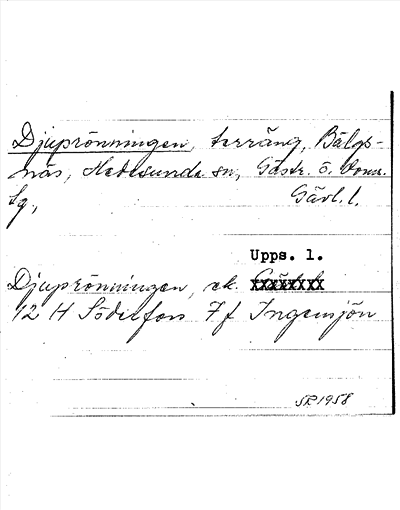 Djuprönningen, terräng, Bälgs-
näs, Hedesunda sn, Gästr. ö. Doms.
sg, Gävl. l.
Upps. l.
Djuprönningen, ek. XXXXXXXX
12 H Söderfors 7 f Ingemsjön
SR 1958